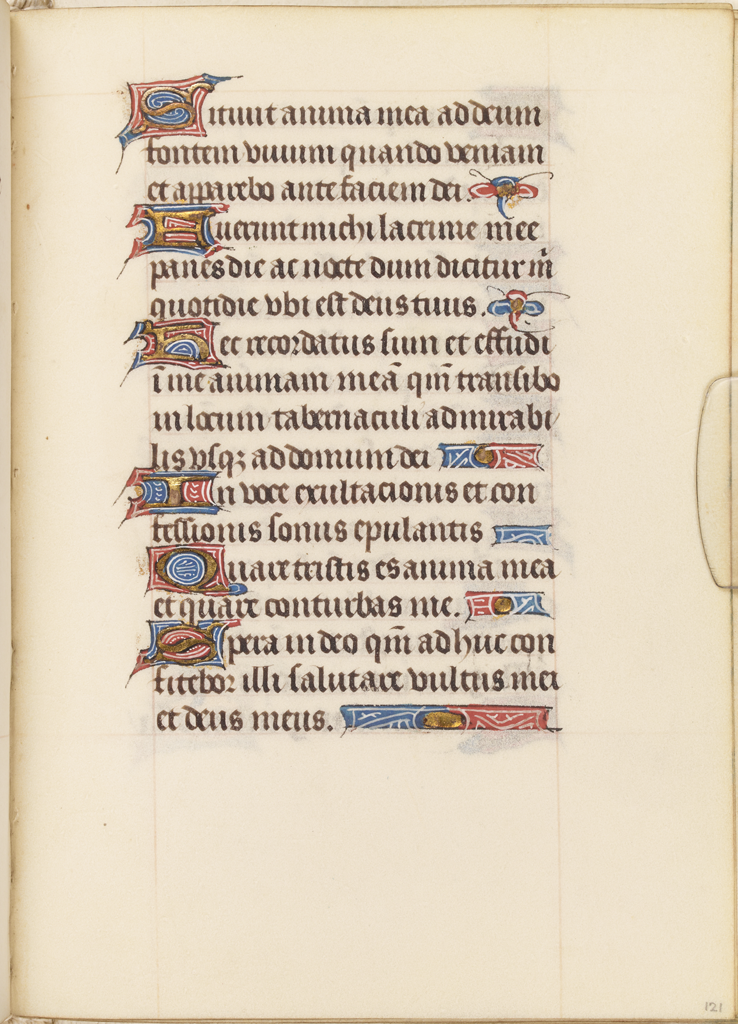 Sitiuit anima mea ad deum
fontem viuum quando veniam
et apparebo ante faciem dei.
Fuerunt michi lacrime mee
panes die ac nocte dum dicitur m̄
quotidie vbi est deus tuus.
Hec recordatus sum et effudi
ī me animam meā qm̄ transibo
in locum tabernaculi admirabi
lis vsqꝫ ad domum dei
In voce exultacionis et con
fessionis sonus epulantis
Quare tristis es anima mea
et quare conturbas me.
Spera in deo qm̄ adhuc con
fitebor illi salutare vultus mei
et deus meus.
121